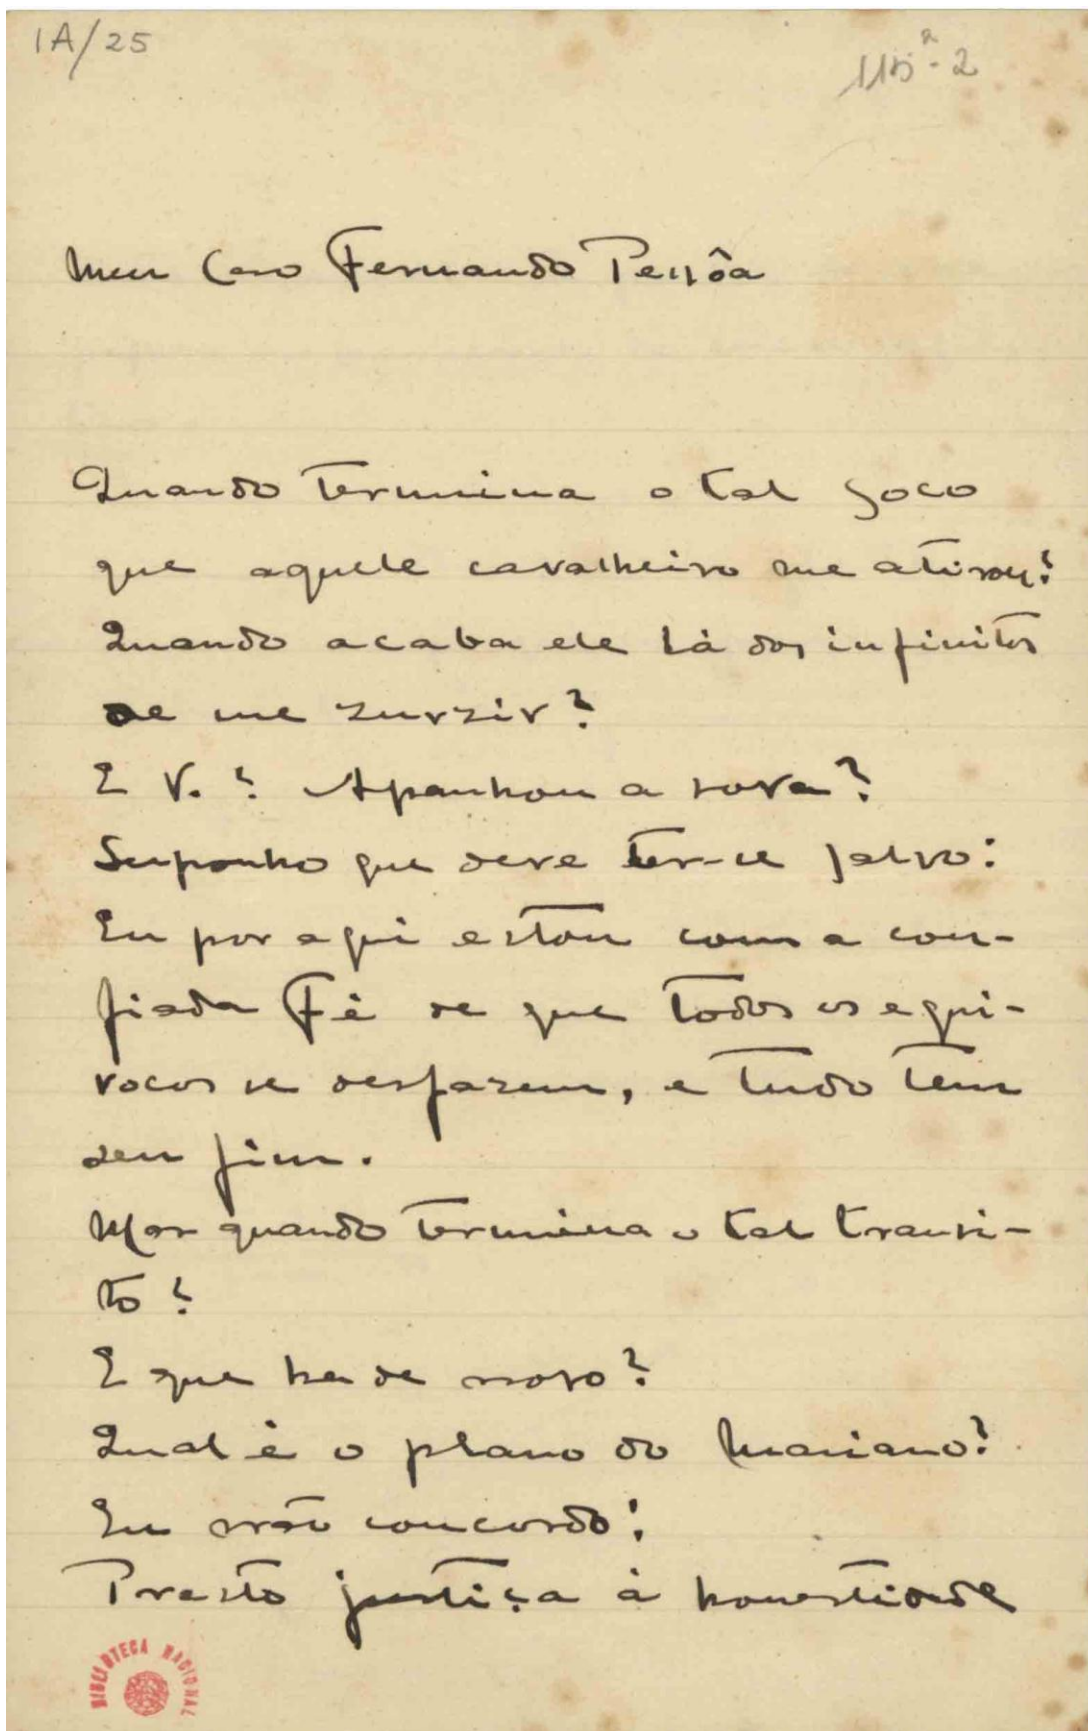 1A/25
115²-2
Meu Caro Fernando Pessôa
Quando termina o tal soco
que aquele cavalheiro me atirou?
Quando acaba ele lá dos infinitos
de me zurzir?
E V.? Apanhou a sova?
Suponho que deve ter-se salvo!
Eu por aqui estou com a con-
fiada Fé de que todos os equi-
vocos se desfazem, e tudo tem
seu fim.
Mas quando termina o tal transi-
to?
E que ha de novo?
Qual é o plano do Mariano?
Eu não concordo!
Presto justiça á honestidade
BIBLIOTECA NACIONAL